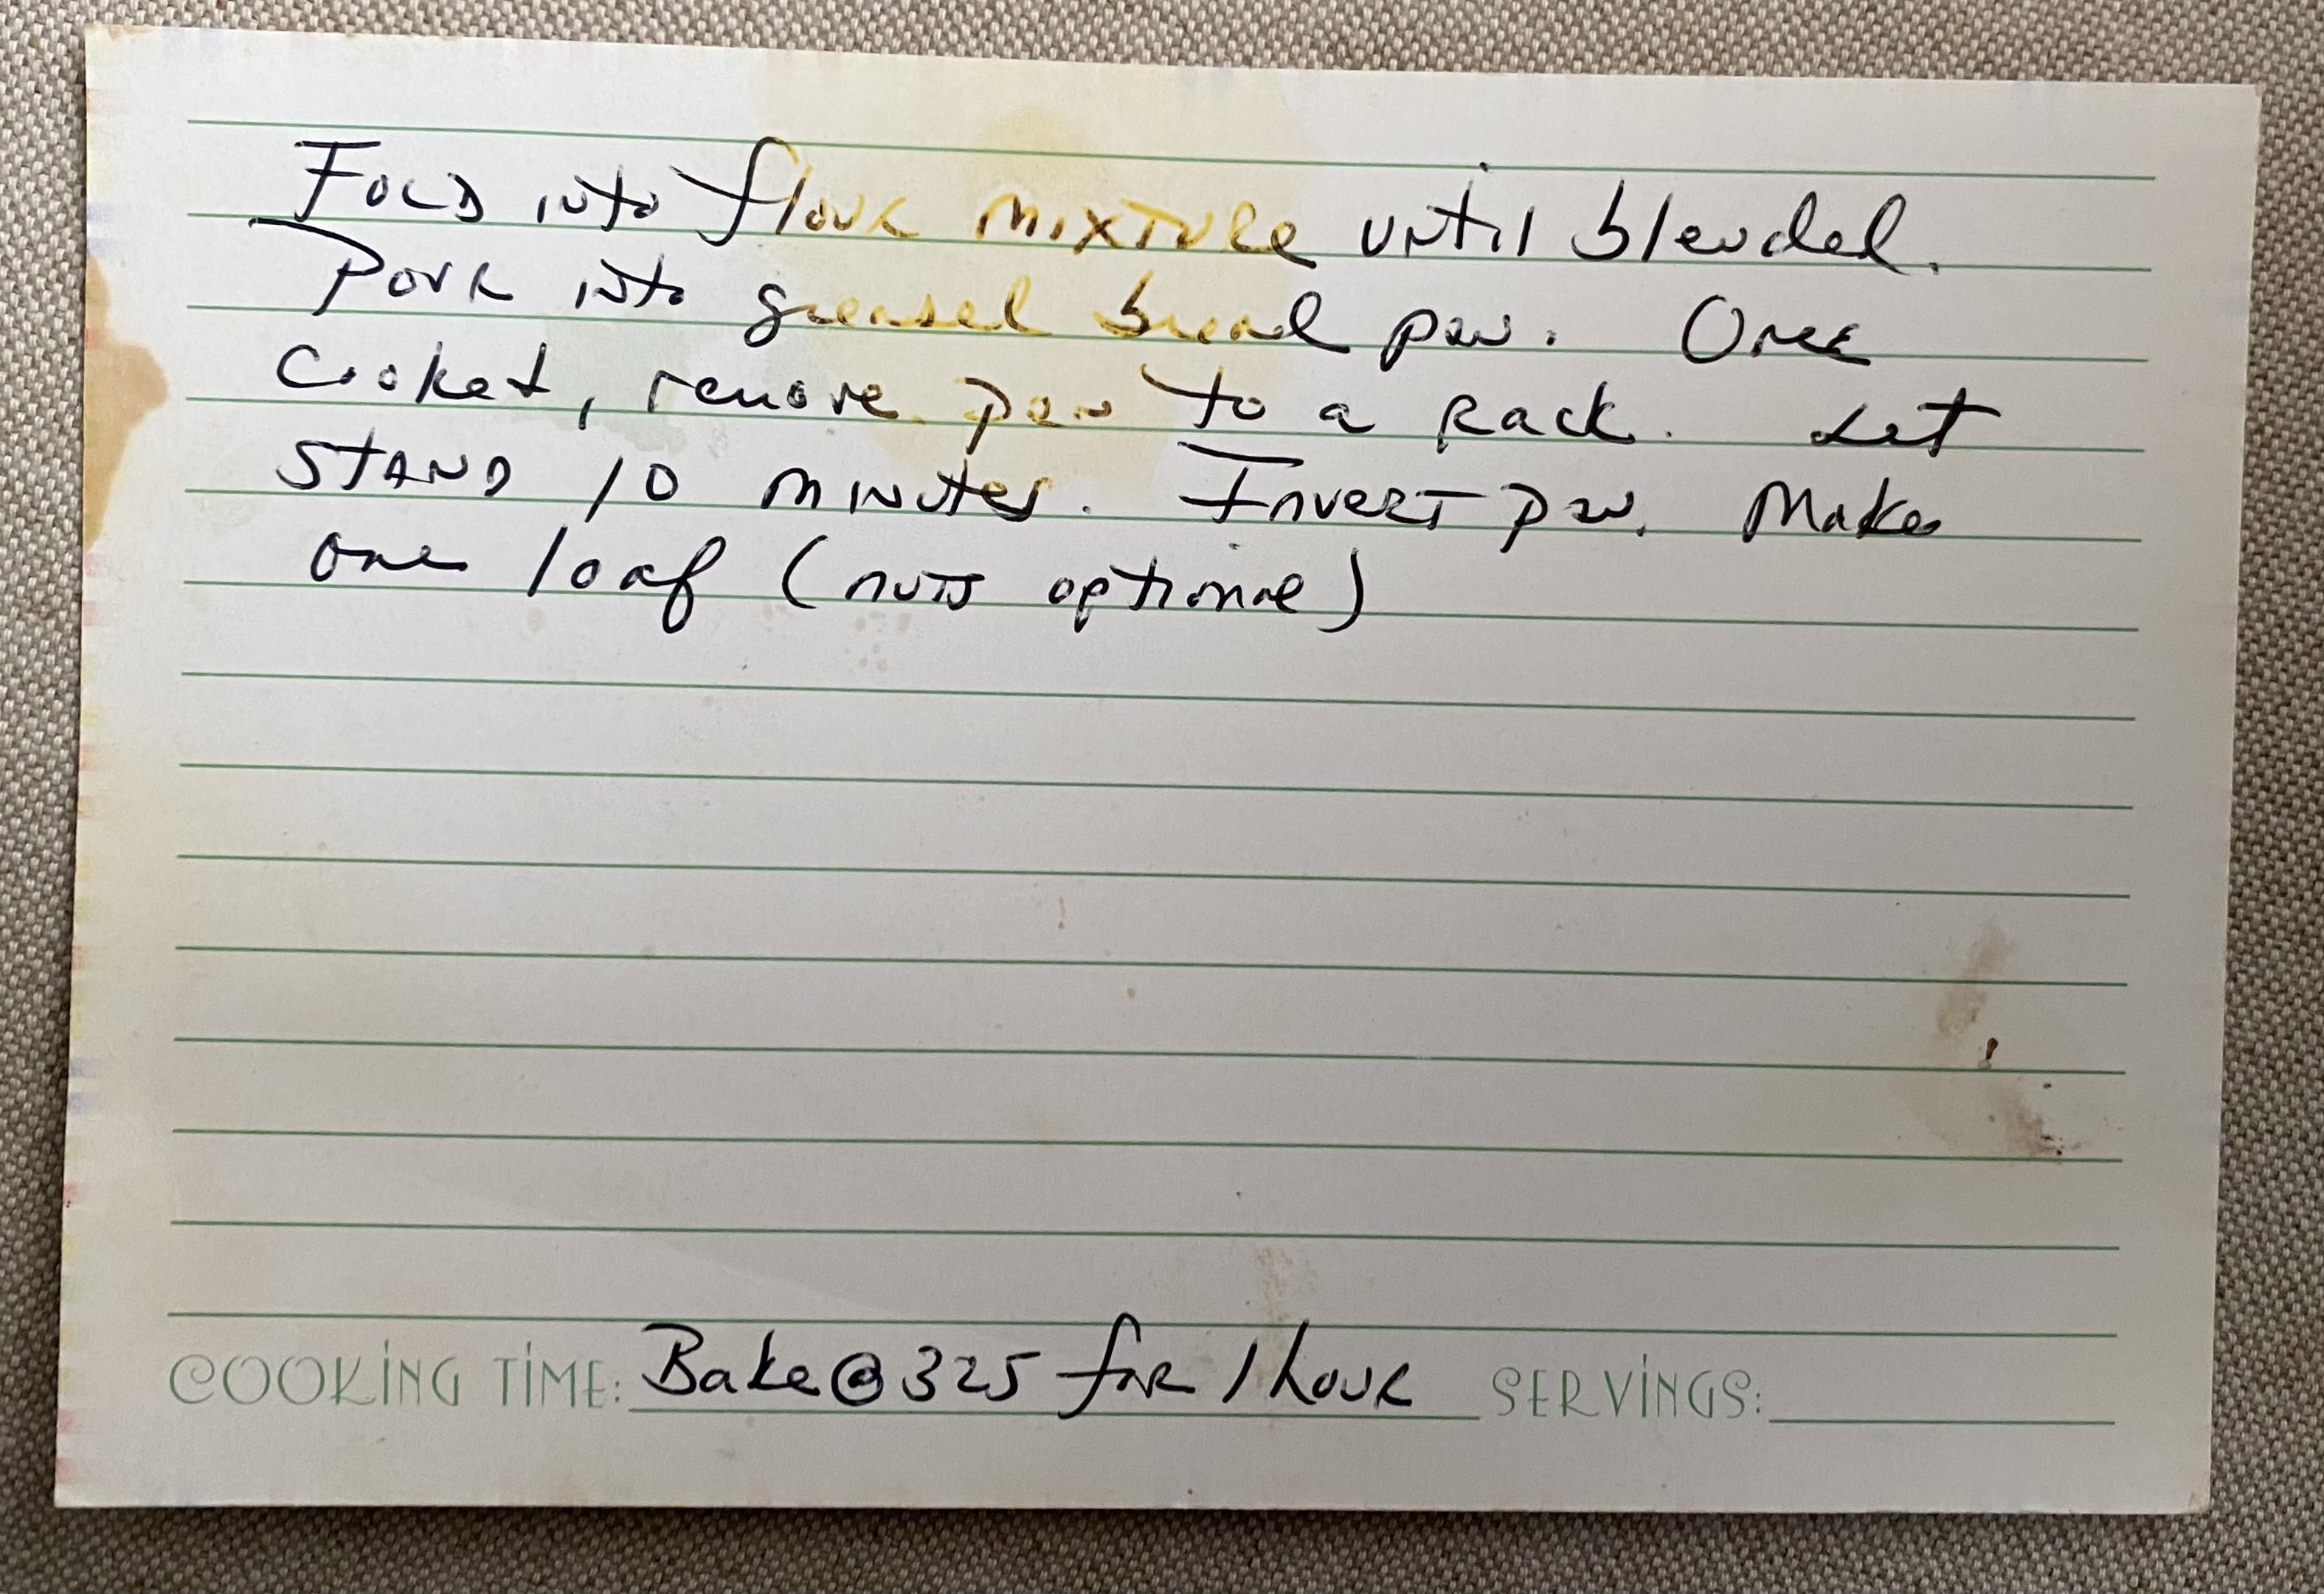 Fold into flour mixture until blended.
Pour into greased bread pan. Once
cooked, remove pan to a rack. Let
stand 10 minutes. Invert pan. Makes
one loaf (nuts optional)
COOKING TIME: Bake @ 325 for 1 hour SERVINGS: